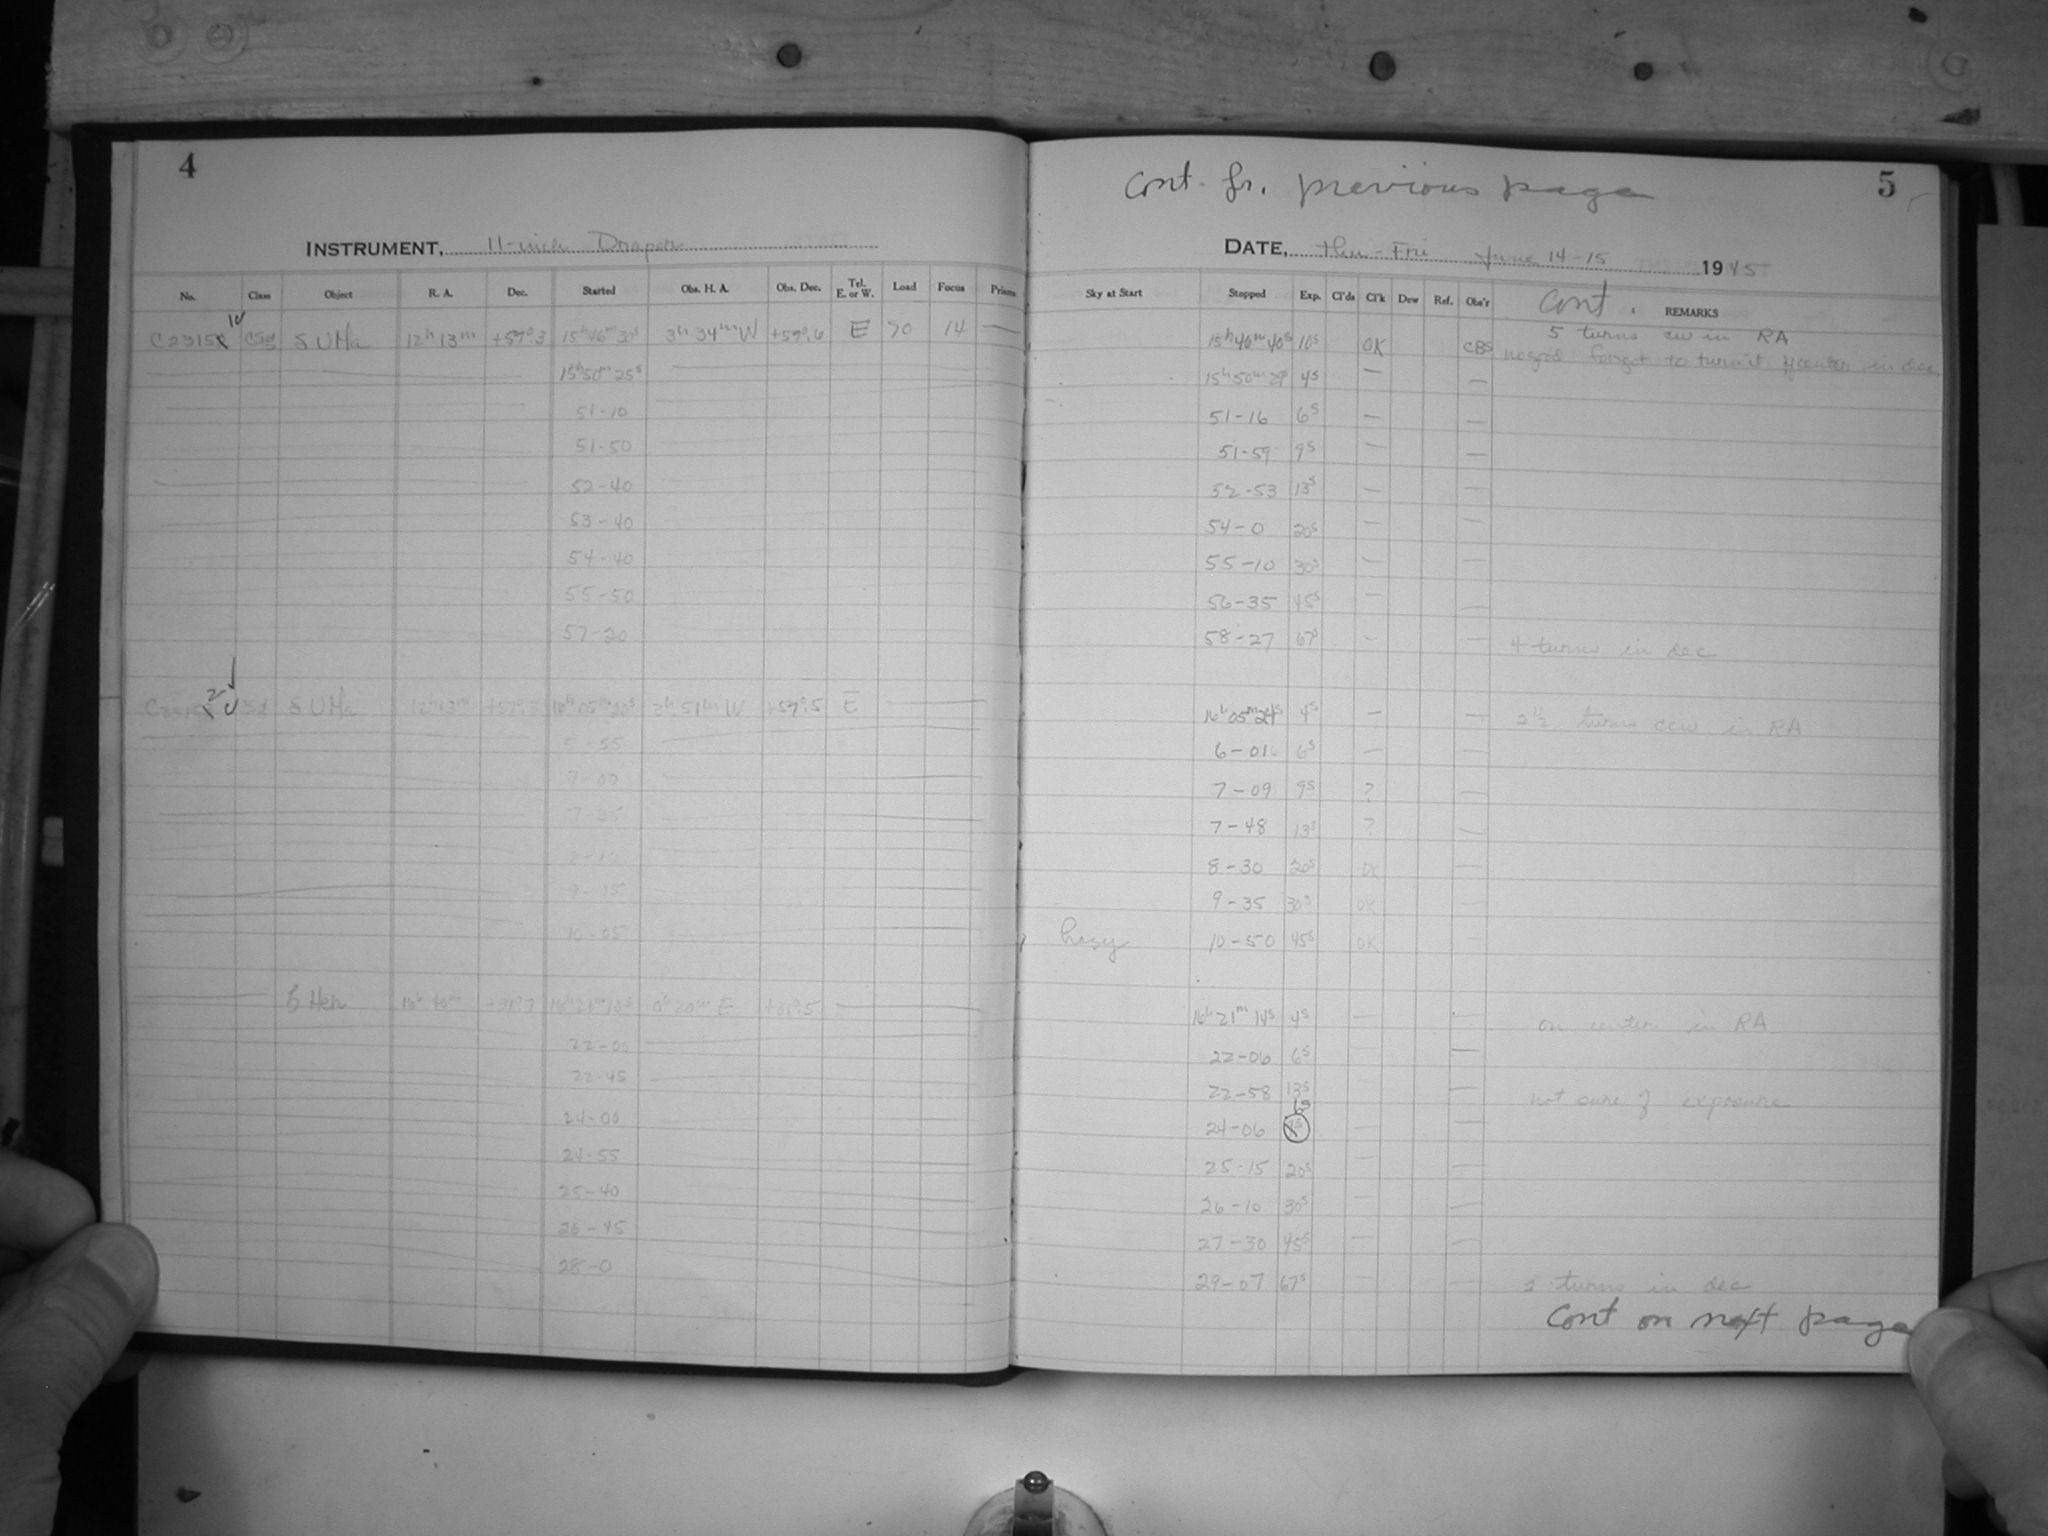 4
INSTRUMENT, 11-inch Draper
No. Class Object R. A. Dec. Started Obs. H. A. Obs. Dec. Tel. E. or W. Load Focus Prisms
δ UMa 12h 13m +57°.3 15h 46m 30s 3h 34m W +57°.6 E 70 14 —
15h 50m 25s
51-10
51-50
52-40
53-40
54-40
55-50
57-20
δ UMa 12h 13m +57°.3 16h 05m 20s 3h 51m W +57°.5 E
5-55
7-00
7-35
8-10
9-15
10-05
ζ Her 16h 40m +31°.7 16h 21m 10s 0h 20m E +31°.5
22-00
22-45
24-00
24-55
25-40
26-45
28-0
Cont. fr. previous page
5
DATE, Thu - Fri June 14-15 1945
Sky at Start Stopped Exp. Cl'ds Cl'k Dew Ref. Obs'r Cont. REMARKS
5 turns cw in RA
15h 46m 40s 10s OK CBS forgot to turn it center in dec
15h 50m 29s 4s — —
51-16 6s — —
51-59 9s — —
52-53 13s — —
54-0 20s — —
55-10 30s — —
56-35 45s — —
58-27 67s — — 4 turns in dec
16h 05m 24s 4s — — 2 1/2 turns ccw in RA
6-01 6s — —
7-09 9s ? —
7-48 13s ? —
8-30 20s OK —
9-35 30s OK —
hazy 10-50 45s OK —
16h 21m 14s 4s — — on center in RA
22-06 6s — —
22-58 13s — — not sure of exposure
6s
24-06 — —
25-15 20s — —
26-10 30s — —
27-30 45s — —
29-07 67s — — 2 turns in dec
Cont on next page